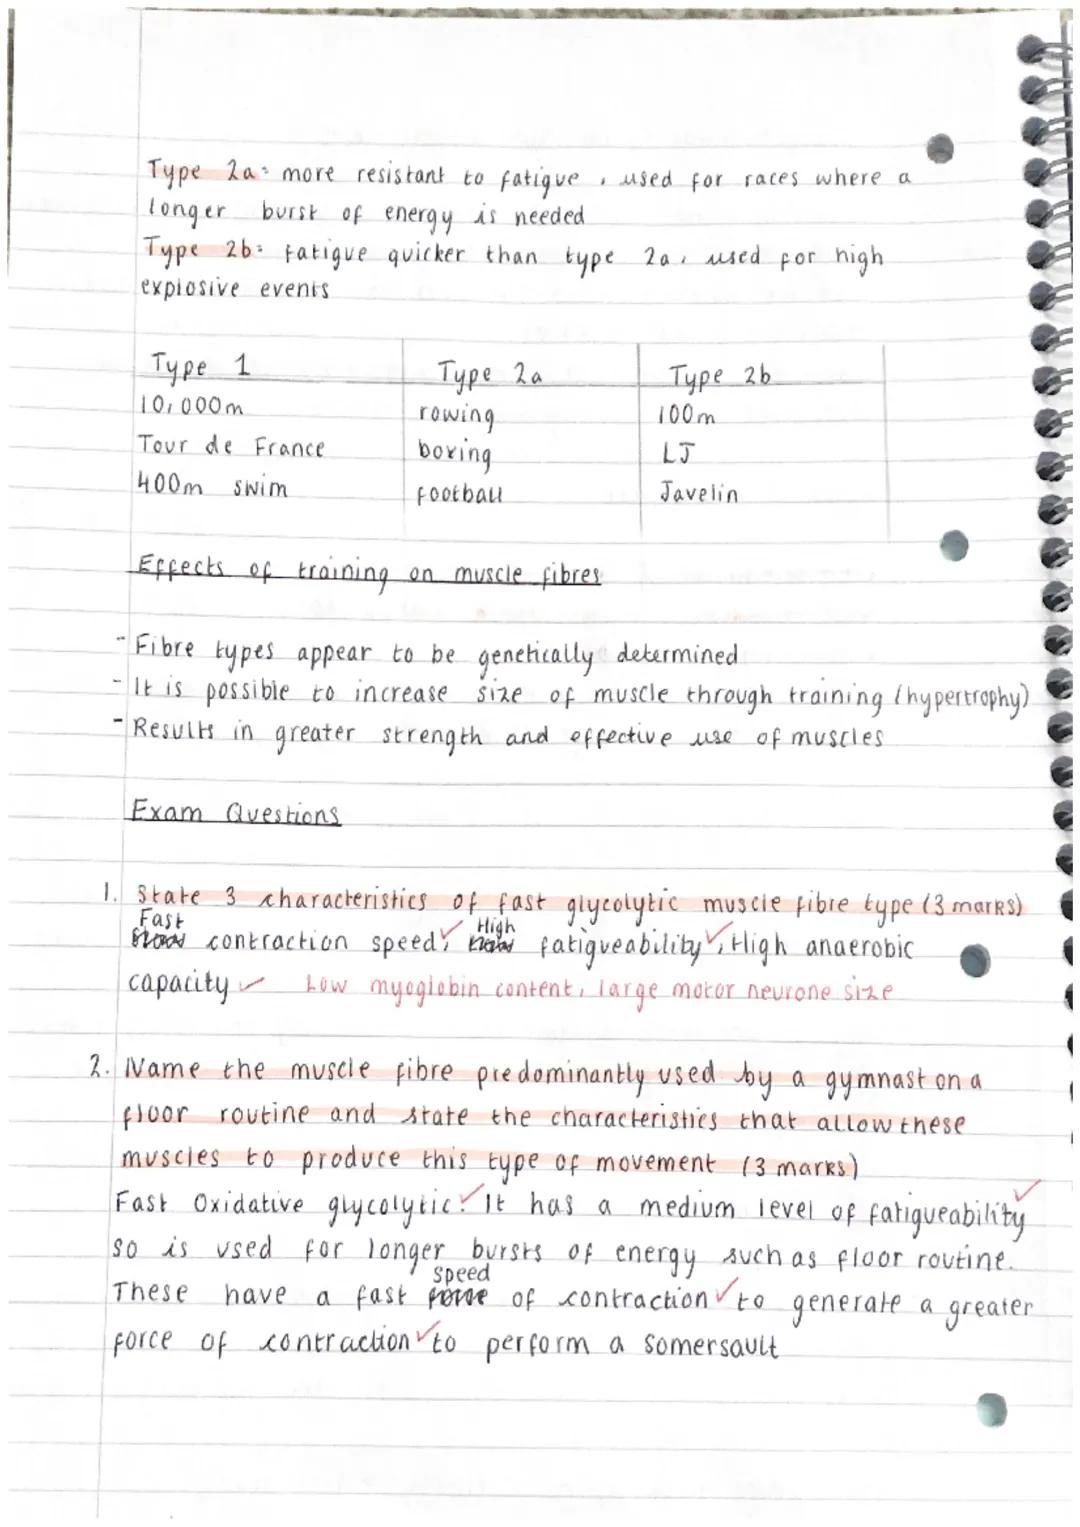 Type 2a: more resistant to fatigue, used for races where a
longer burst of energy is needed
Type 2b: fatigue quicker than type 2a, used for high
explosive events
Type 1 Type 2a Type 2b
10,000m rowing 100m
Tour de France boxing LJ
400m swim football Javelin
Effects of training on muscle fibres
- Fibre types appear to be genetically determined
- It is possible to increase size of muscle through training (hypertrophy)
- Results in greater strength and effective use of muscles
Exam Questions
1. State 3 characteristics of fast glycolytic muscle fibre type (3 marks)
Fast contraction speed, High fatigueability, High anaerobic
capacity Low myoglobin content, large motor neurone size
2. Name the muscle fibre predominantly used by a gymnast on a
floor routine and state the characteristics that allow these
muscles to produce this type of movement (3 marks)
Fast Oxidative glycolytic. It has a medium level of fatigueability
so is used for longer bursts of energy such as floor routine.
These have a fast speed of contraction to generate a greater
force of contraction to perform a somersault